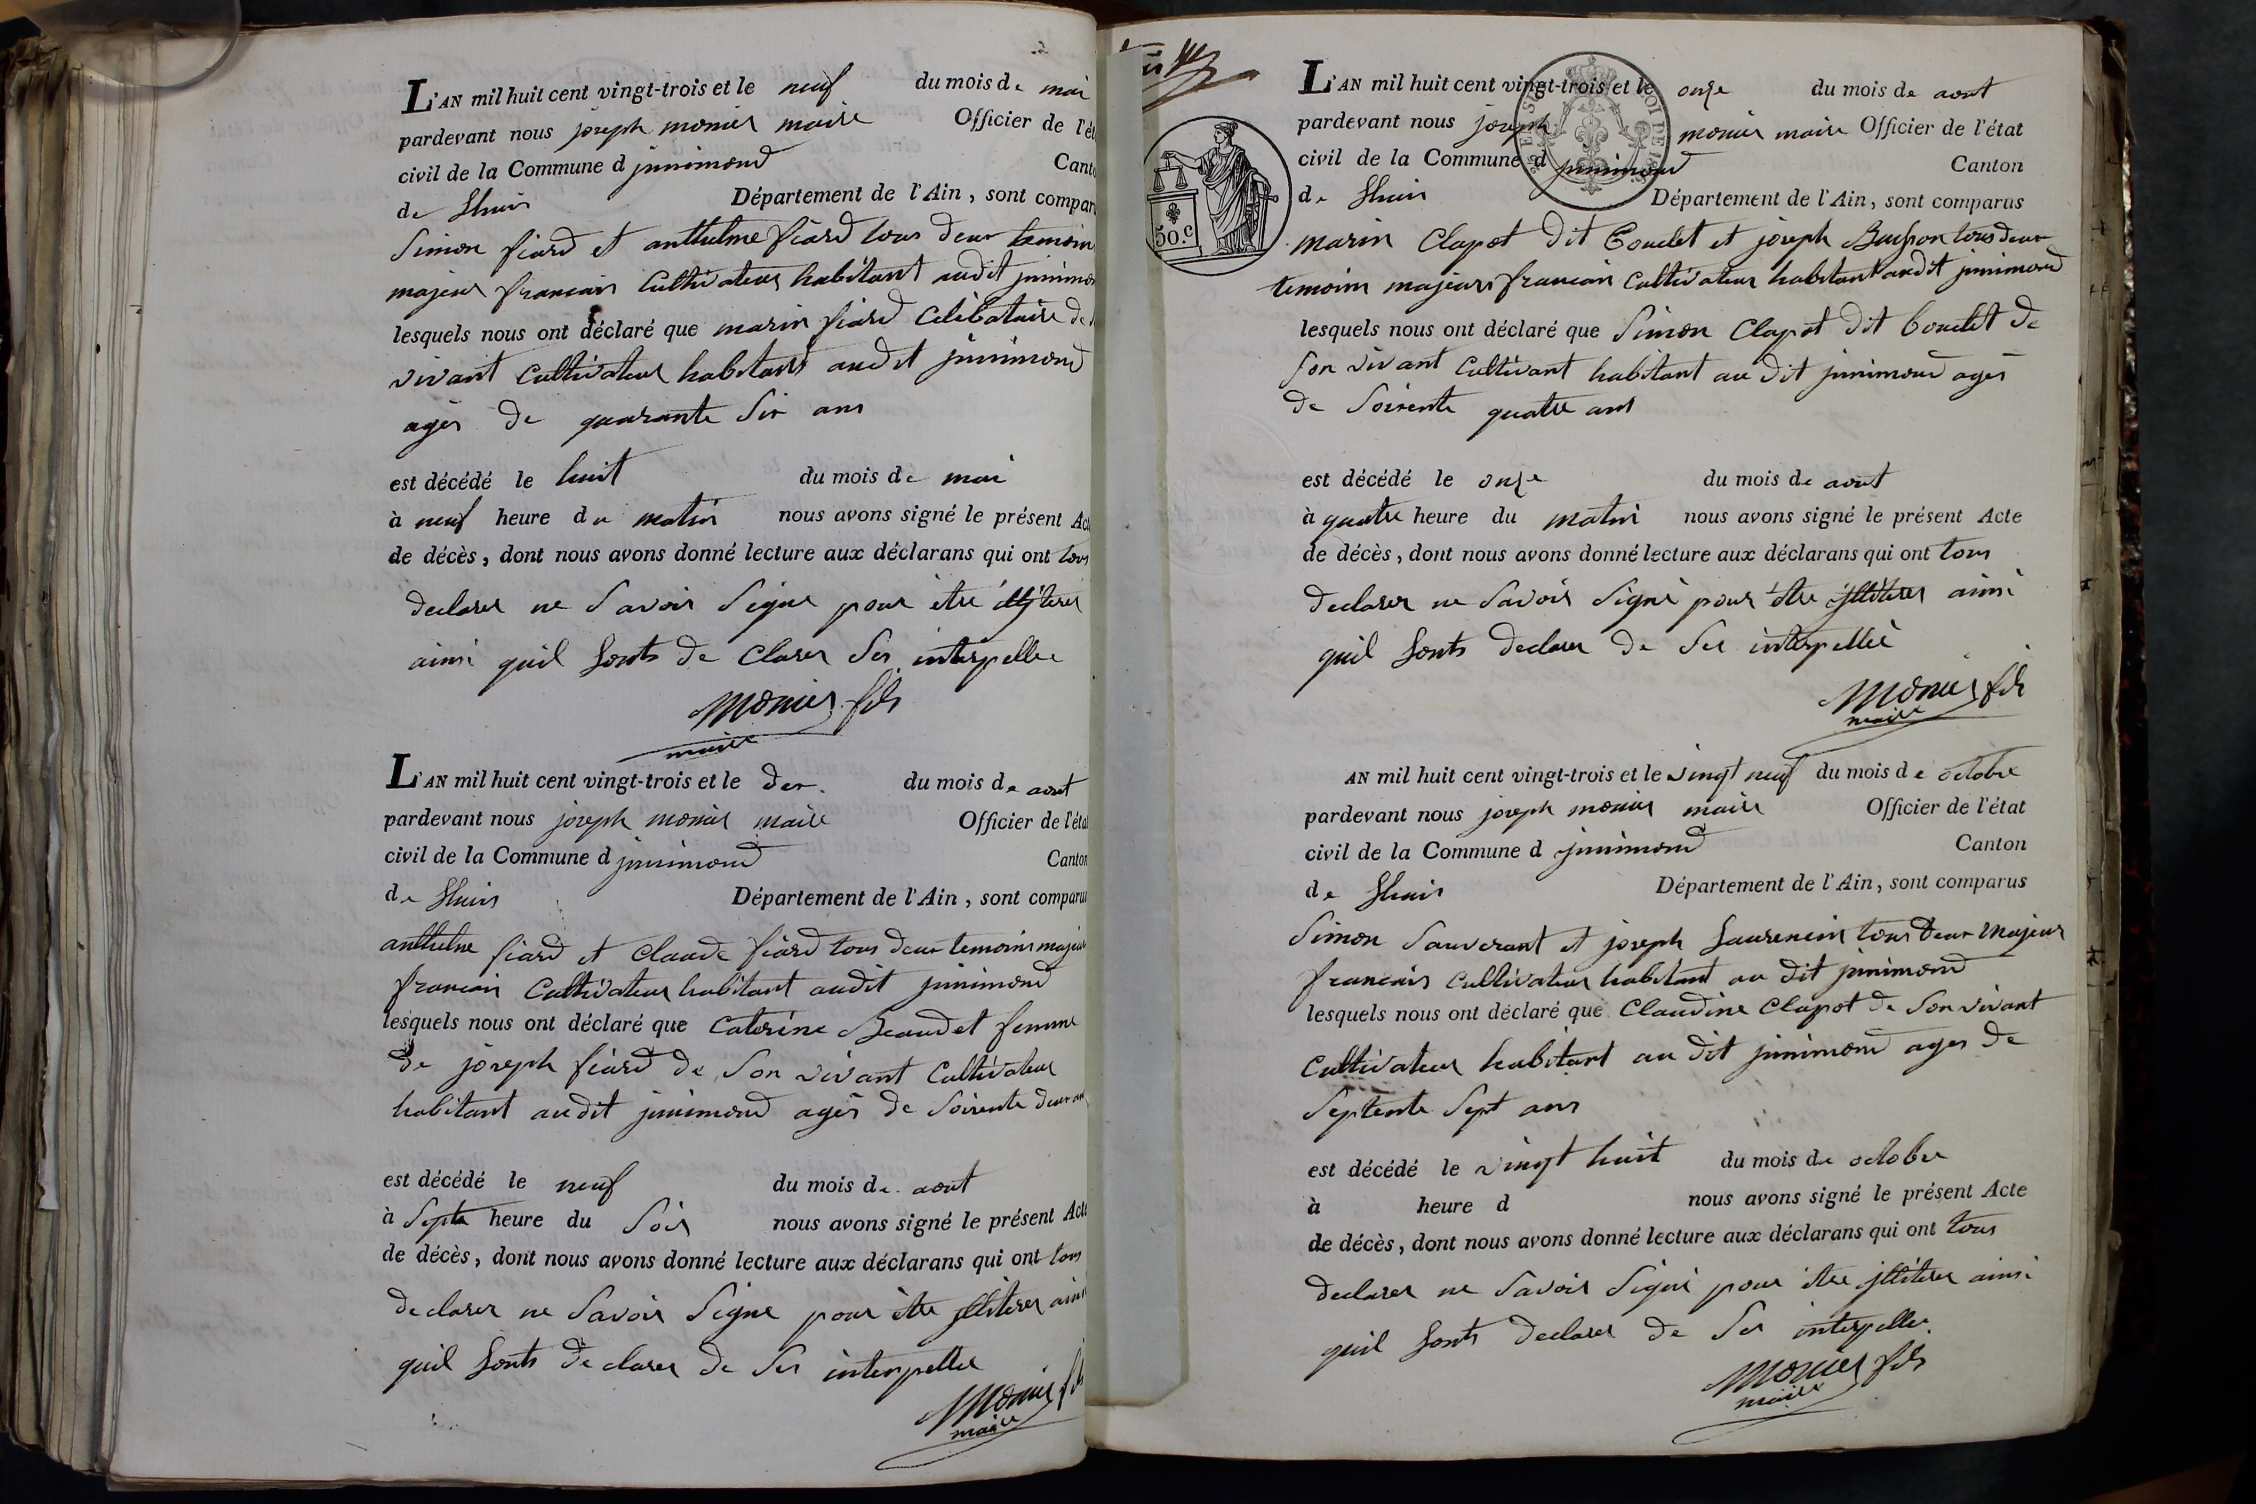 L'AN mil huit cent vingt-trois et le neuf du mois de mai
pardevant nous joseph monier maire Officier de l'ét
civil de la Commune d jnnimond Cant
de Lhuis Département de l'Ain, sont compar
Simon fiard et anthelme fiard tous deux temoin
majeur francais Cultivateur habitant audit jnnimon
lesquels nous ont déclaré que marin fiard Celibataire de
vivant Cultivateur habitant audit jnnimond
agés de quarante Six ans
est décédé le huit du mois de mai
à neuf heure du matin nous avons signé le présent Act
de décès, dont nous avons donné lecture aux déclarans qui ont tous
declarer ne Savoir Signe pour être
ainsi quil Sonts de Clarer Ses interpelle
monier fils
maire
L'AN mil huit cent vingt-trois et le dix du mois de aout
pardevant nous joseph monier maire Officier de l'éta
civil de la Commune d jnnimond Canton
de Lhuis Département de l'Ain, sont comparu
anthelme fiard et Claude fiard tous deux temoins majeur
francais Cultivateur habitant audit jnnimond
lesquels nous ont déclaré que Caterine Beaudet femme
de joseph fiard de Son vivant Cultivateur
habitant audit jnnimond agés de Soixente deux an
est décédé le neuf du mois de aout
à Septe heure du Soir nous avons signé le présent Acte
de décès, dont nous avons donné lecture aux déclarans qui ont tous
declarer ne Savoir Signe pour être jlliterer ainsi
quil Sonts de clarer de Ses interpelle
Monier fils
maire
L'AN mil huit cent vingt-trois et le onze du mois de aout
pardevant nous joseph monier maire Officier de l'état
civil de la Commune d jnnimond Canton
de Lhuis Département de l'Ain, sont comparus
50.c
marin Clapot dit Coudet et joseph tous deux
temoins majeurs francais Cultivateur habitant audit jnnimond
lesquels nous ont déclaré que Simon Clapot dit Coudet de
Son vivant Cultivant habitant au dit jnnimond agés
de Soixente quatre ans
est décédé le onze du mois de aout
à quatre heure du matin nous avons signé le présent Acte
de décès, dont nous avons donné lecture aux déclarans qui ont tous
declarer ne Savoir Signé pour être jlliterer ainsi
quil Sonts declarer de Ses interpellé
Monier fils
maire
AN mil huit cent vingt-trois et le vingt neuf du mois de octobre
pardevant nous joseph monier maire Officier de l'état
civil de la Commune d jnnimond Canton
de Lhuis Département de l'Ain, sont comparus
Simon Sauverant et joseph Laurencin tous deux Majeur
francais Cultivateur habitant au dit jnnimond
lesquels nous ont déclaré que Claudine Clapot de Son vivant
Cultivateur habitant au dit jnnimond ages de
Septente Sept ans
est décédé le vingt huit du mois de octobre
à heure d nous avons signé le présent Acte
de décès, dont nous avons donné lecture aux déclarans qui ont tous
declarer ne Savoir Signé pour être jlliterer ainsi
quil Sonts declarer de Ses interpelle
Monier fils
maire